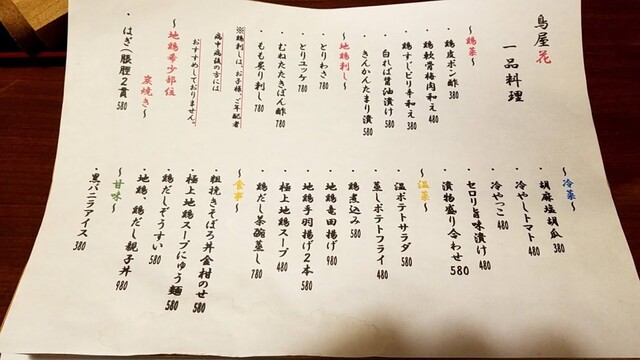 鳥屋花
一品料理
～鶏菜～
・鶏皮ポン酢 380
・鶏軟骨梅肉和え 480
・鶏すじピリ辛和え 380
・白ればー醤油漬け 580
・きんかんたまり漬 580
～地鶏刺し～
・とりわさ 780
・とりユッケ 780
・むねたたきぽん酢 780
・もも炙り刺し 780
※鶏刺しは、お子様、ご年配者
病中病後の方には
おすすめしておりません。
～地鶏希少部位
炭焼き～
・はぎ(腿脛)2貫 580
～冷菜～
・胡麻塩胡瓜 380
・冷やしトマト 480
・冷やっこ 480
・セロリ旨味漬け 480
・漬物盛り合わせ 580
～温菜～
・温ポテトサラダ 580
・蒸しポテトフライ 480
・鶏煮込み 580
・地鶏竜田揚げ 980
・地鶏手羽揚げ2本 580
・極上地鶏スープ 480
・鶏だし茶碗蒸し 780
～食事～
・粗挽きそぼろ丼金柑のせ 580
・極上地鶏スープにゅう麺 580
・鶏だしぞうすい 580
・地鶏、鶏だし親子丼 980
～甘味～
・黒バニラアイス 380